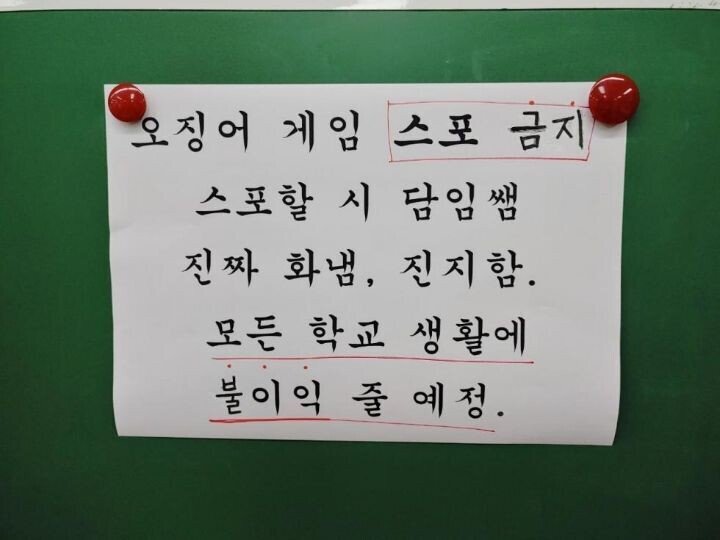 오징어 게임 스포 금지
스포할 시 담임쌤
진짜 화냄, 진지함.
모든 학교 생활에
불이익 줄 예정.